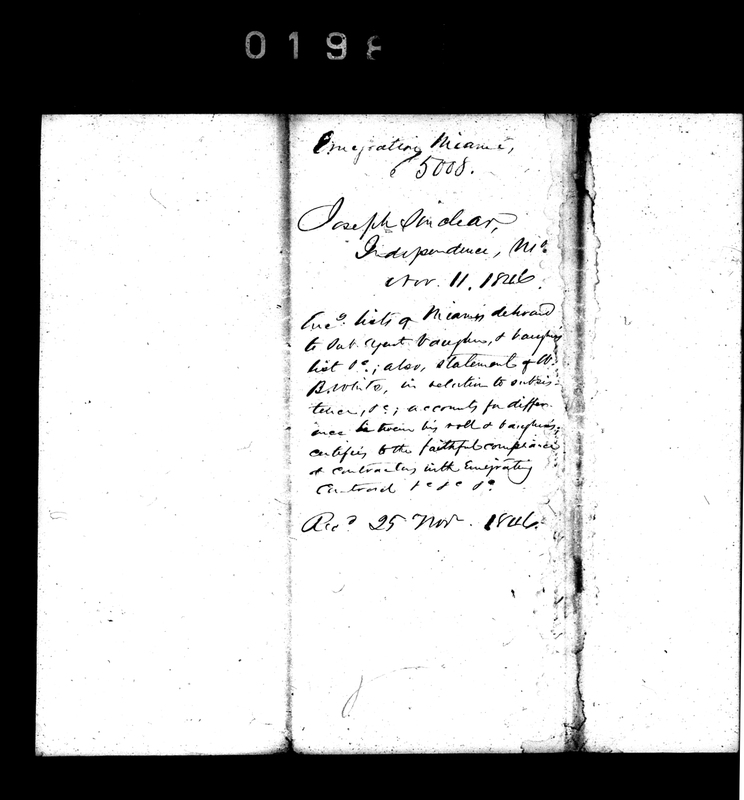 0198
Emigration Miamie,
S 5008.
Joseph Sinclear,
Independence, Mo.
Nov. 11. 1846.
Encd. lists of Miamis delivered
to Sub. Agent Vaughan, & Vaughan's
list &c; also, statement of W.
B. White, in relation to subsis-
tence, &c; accounts for differ-
ence between his roll & Vaughan's;
certifies to the faithful compliance
of contractors with Emigrating
Contract &c &c &c.
Recd 25 Nov. 1846.